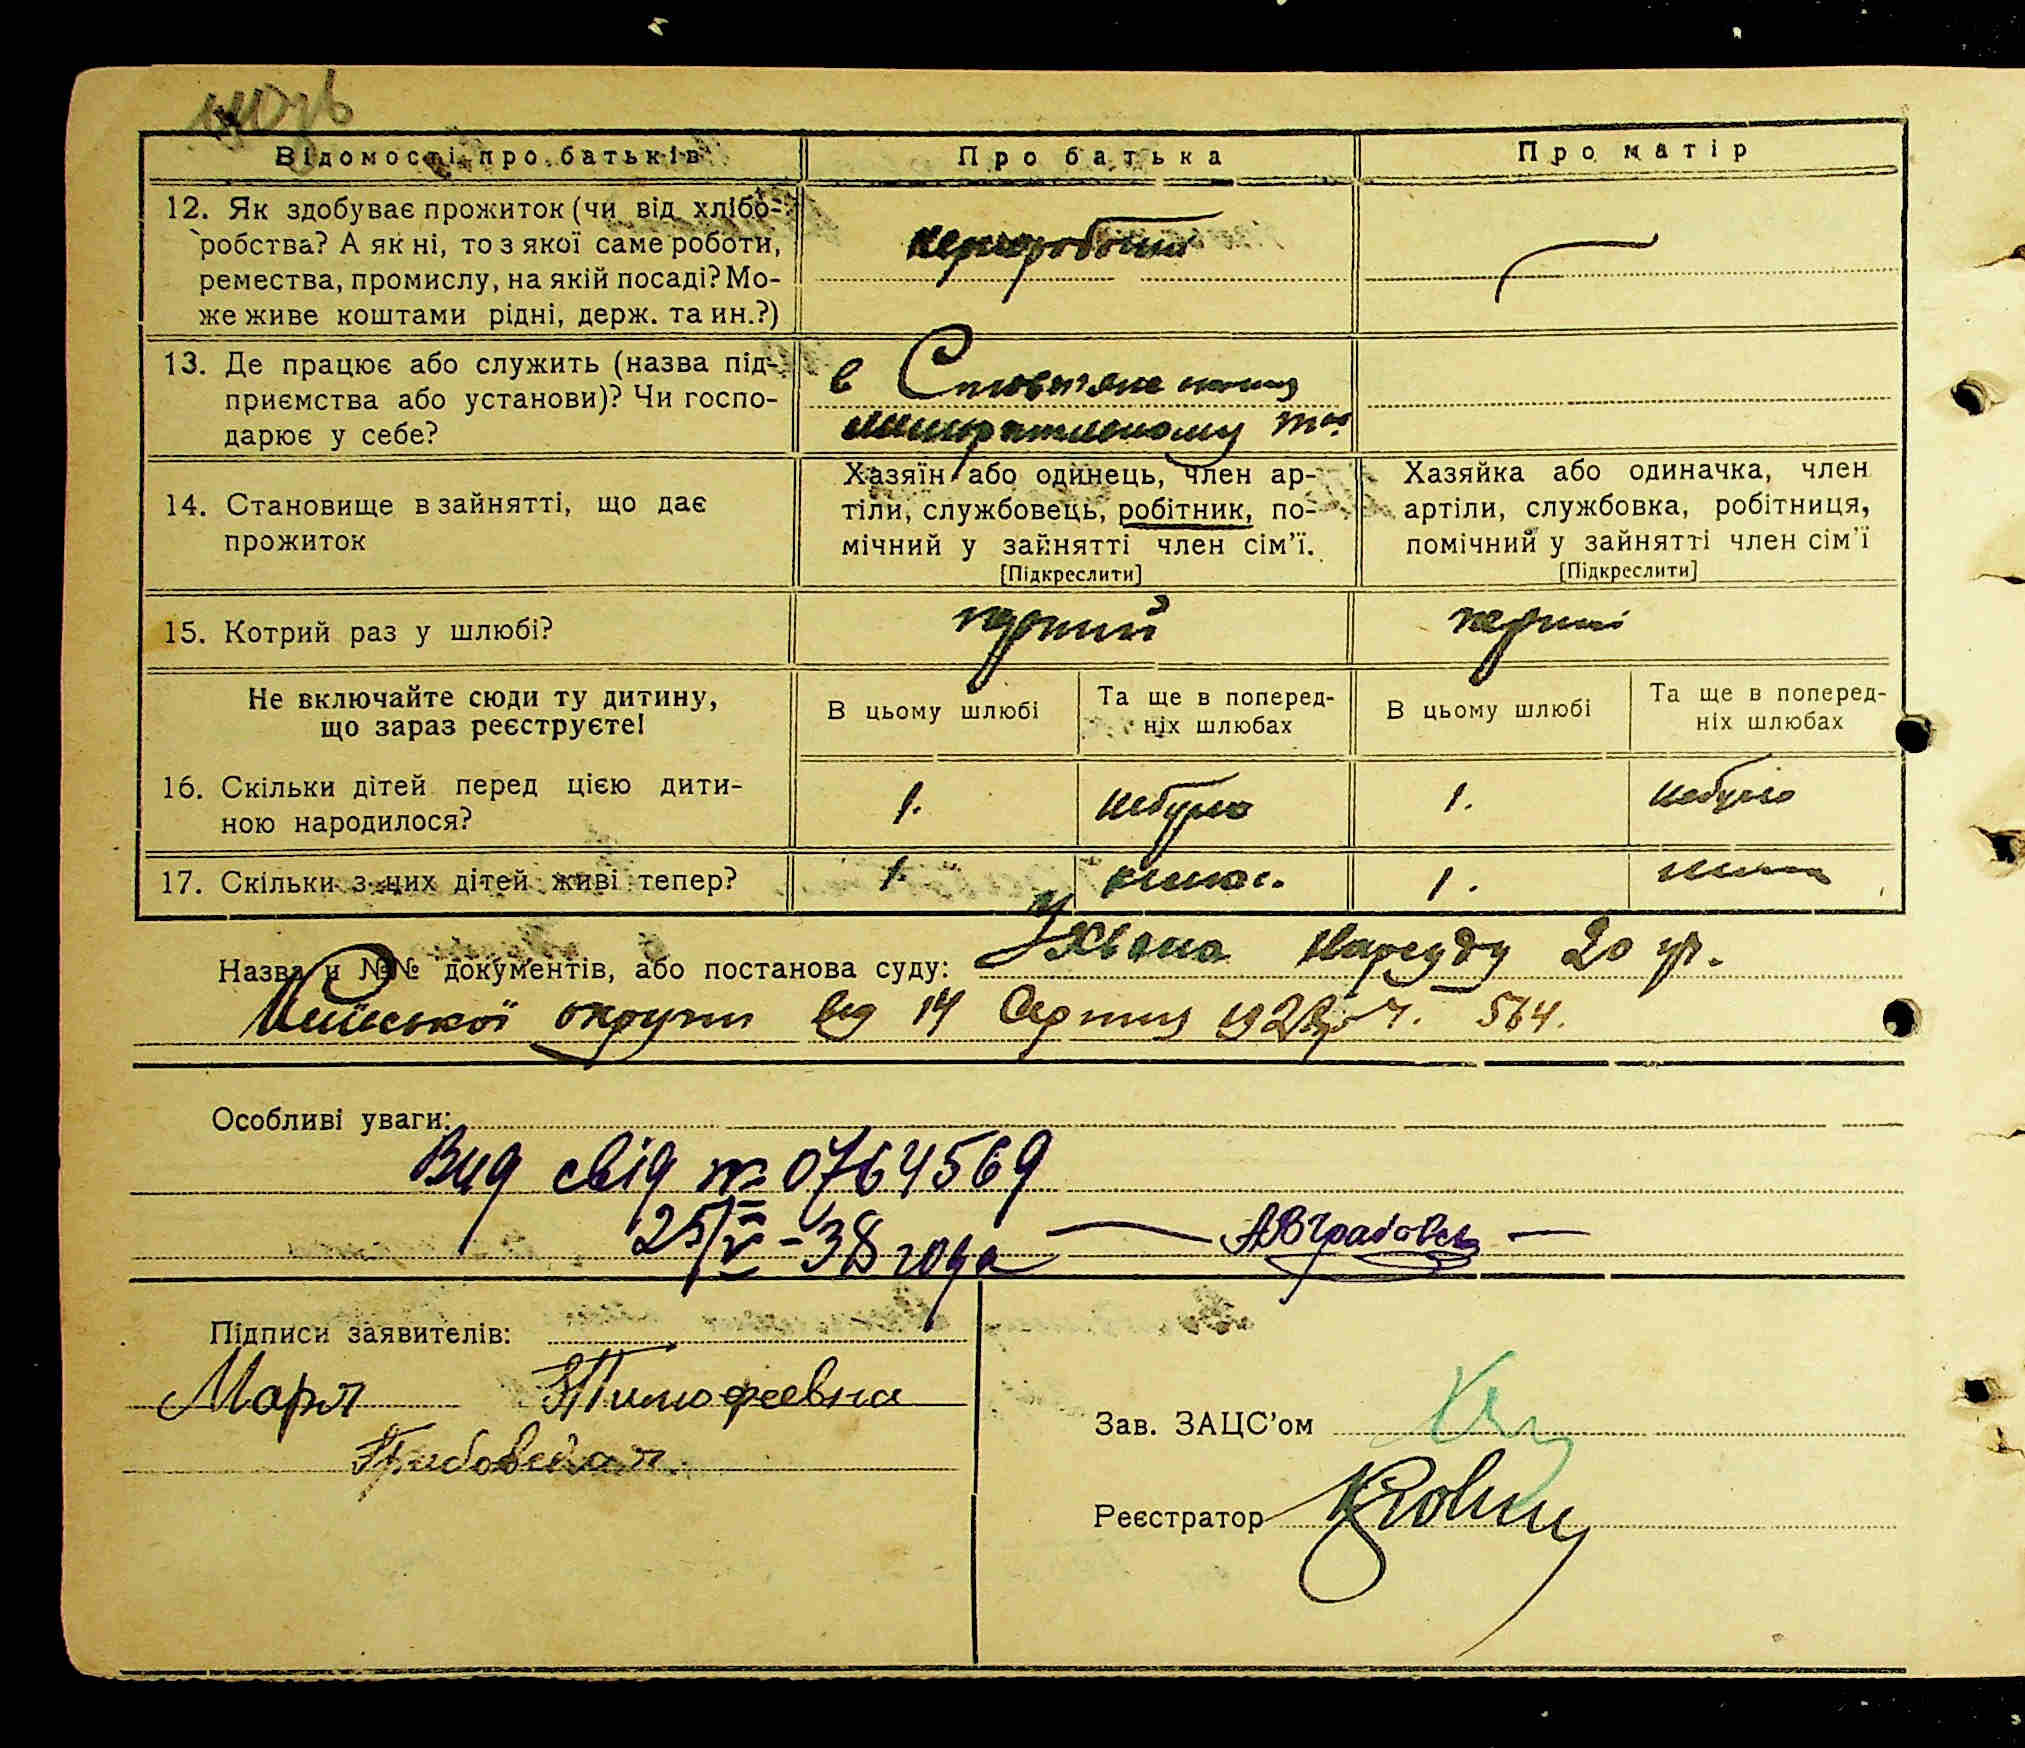 Відомості про батьків
Про батька
Про матір
12. Як здобуває прожиток (чи від хлібо-
робства? А як ні, то з якої саме роботи,
ремества, промислу, на якій посаді? Мо-
же живе коштами рідні, держ. та ин.?)
чорноробочий
13. Де працює або служить (назва під-
приємства або установи)? Чи госпо-
дарює у себе?
в
14. Становище в зайнятті, що дає
прожиток
Хазяїн або одинець, член ар-
тіли, службовець, робітник, по-
мічний у зайнятті член сім'ї.
[Підкреслити]
Хазяйка або одиначка, член
артіли, службовка, робітниця,
помічний у зайнятті член сім'ї
[Підкреслити]
15. Котрий раз у шлюбі?
перший
перший
Не включайте сюди ту дитину,
що зараз реєструєте!
В цьому шлюбі
Та ще в поперед-
ніх шлюбах
В цьому шлюбі
Та ще в поперед-
ніх шлюбах
16. Скільки дітей перед цією дити-
ною народилося?
1.
небуло
1.
небуло
17. Скільки з цих дітей живі тепер?
1.
1.
Назва й №№ документів, або постанова суду:
Нарсуду 20 
округи від 14 Серпня 564.
Особливі уваги:
Вид свід № 0764569
25/IV-38 года
Підписи заявителів:
Марія Тимофеевна
Зав. ЗАЦС'ом
Реєстратор